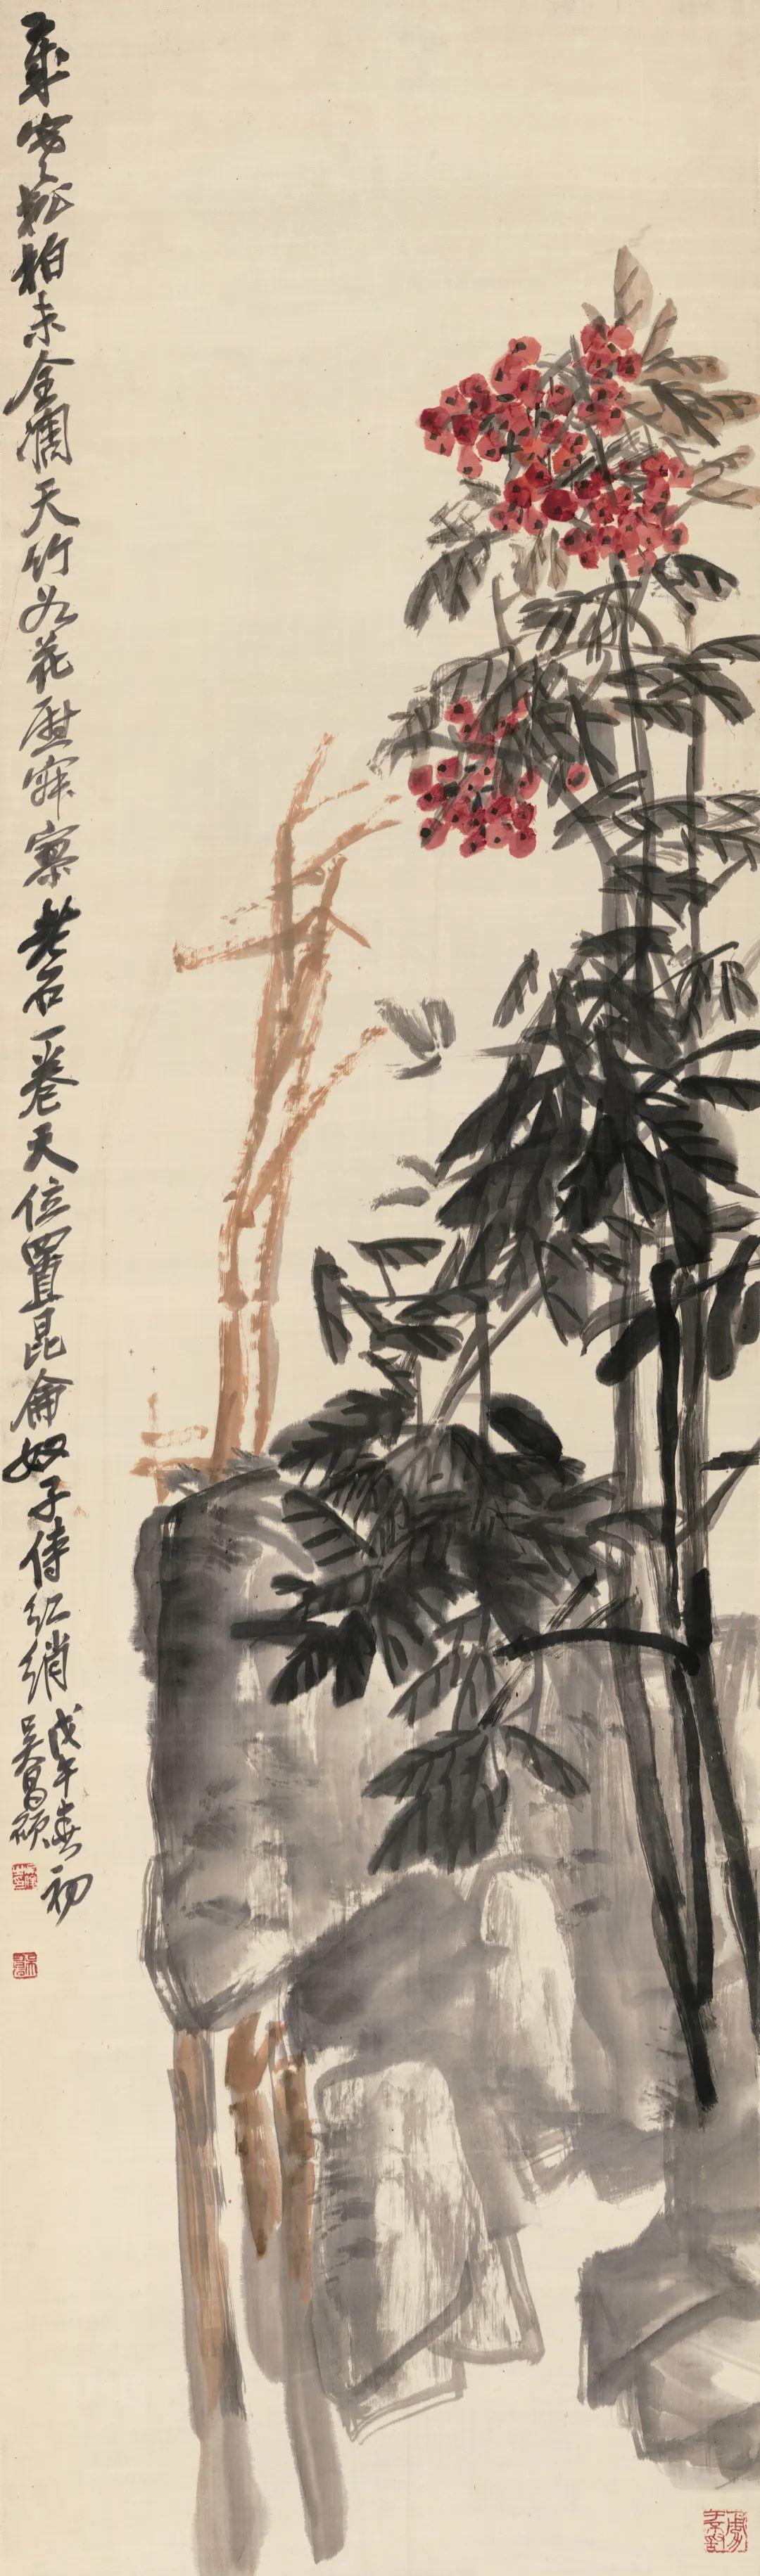 歲寒松柏未全凋天竹如花慰寂寞老石一卷天位置昆侖奴子侍紅綃
戊午春初
吳昌碩